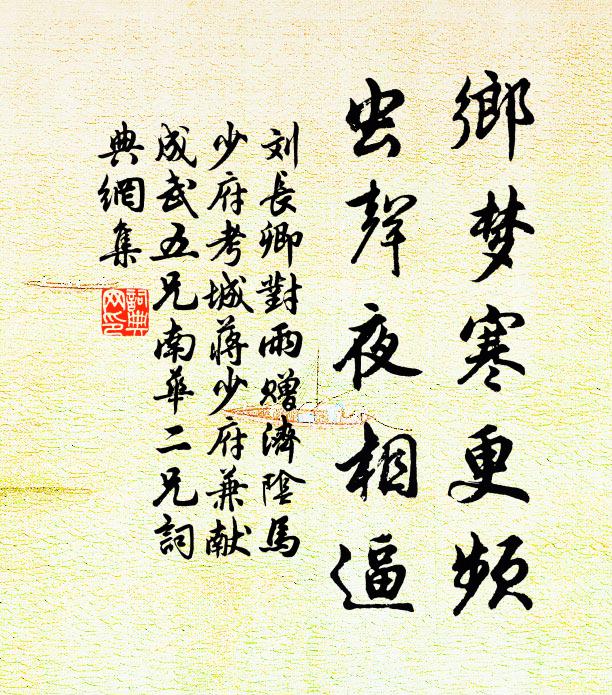 鄉梦寒更頻
虫聲夜相逼
刘長卿對雨赠濟陰馬
少府考城蒋少府兼献
成武五兄南華二兄詞
典網集
詞典
网印